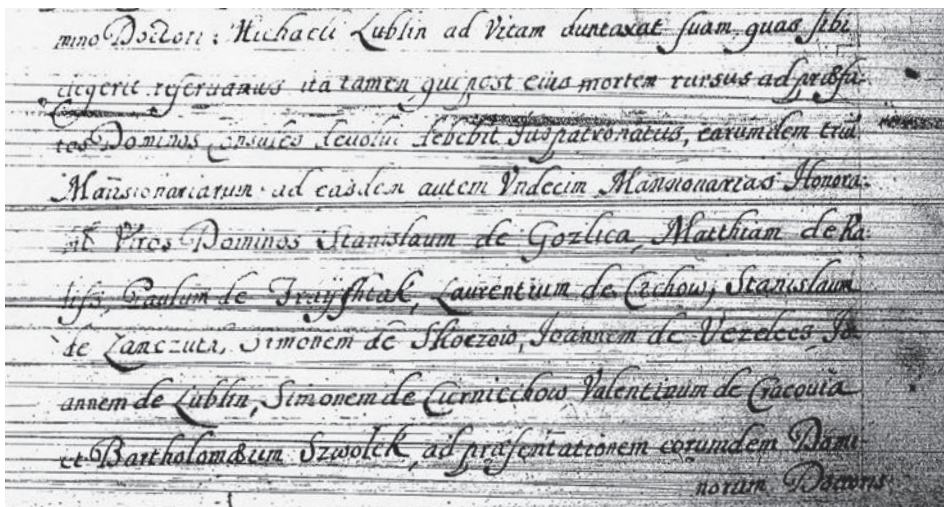 mino Doctori: Michaeli Lublin ad Vitam duntaxat suam, quas sibi
elegerit reseruamus ita tamen, qui post eius mortem rursus ad præfa-
tos Dominos Consules deuolui debebit Juspatronatus, earumdem triu
Mansionariarum. ad easdem autem Vndecim Mansionarias Honora-
Viros Dominos Stanislaum de Gozlica, Matthiam de Ka-
Paulum de Frayshtak, Laurentium de Cichow, Stanislaum
de Lanczuth, Simonem de Skoczow, Joannem de Vezeles, Jo-
annem de Lublin, Simonem de Ciernicchow Valentinum de Cracouia
et Bartholomæum Szwolek, ad præsentationem eorumdem Domi-
norum Doctoris